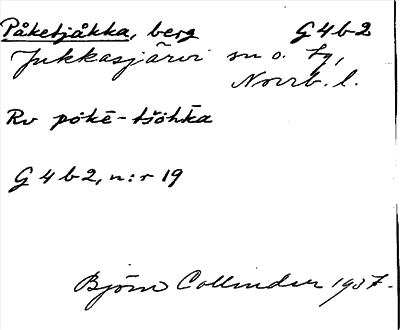 Påketjåkka, berg G 4 b 2
Jukkasjärvi sn o. tg,
Norrb. l.
Rv pökē-tšöhka
G 4 b 2, n:r 19
Björn Collinder 1937.